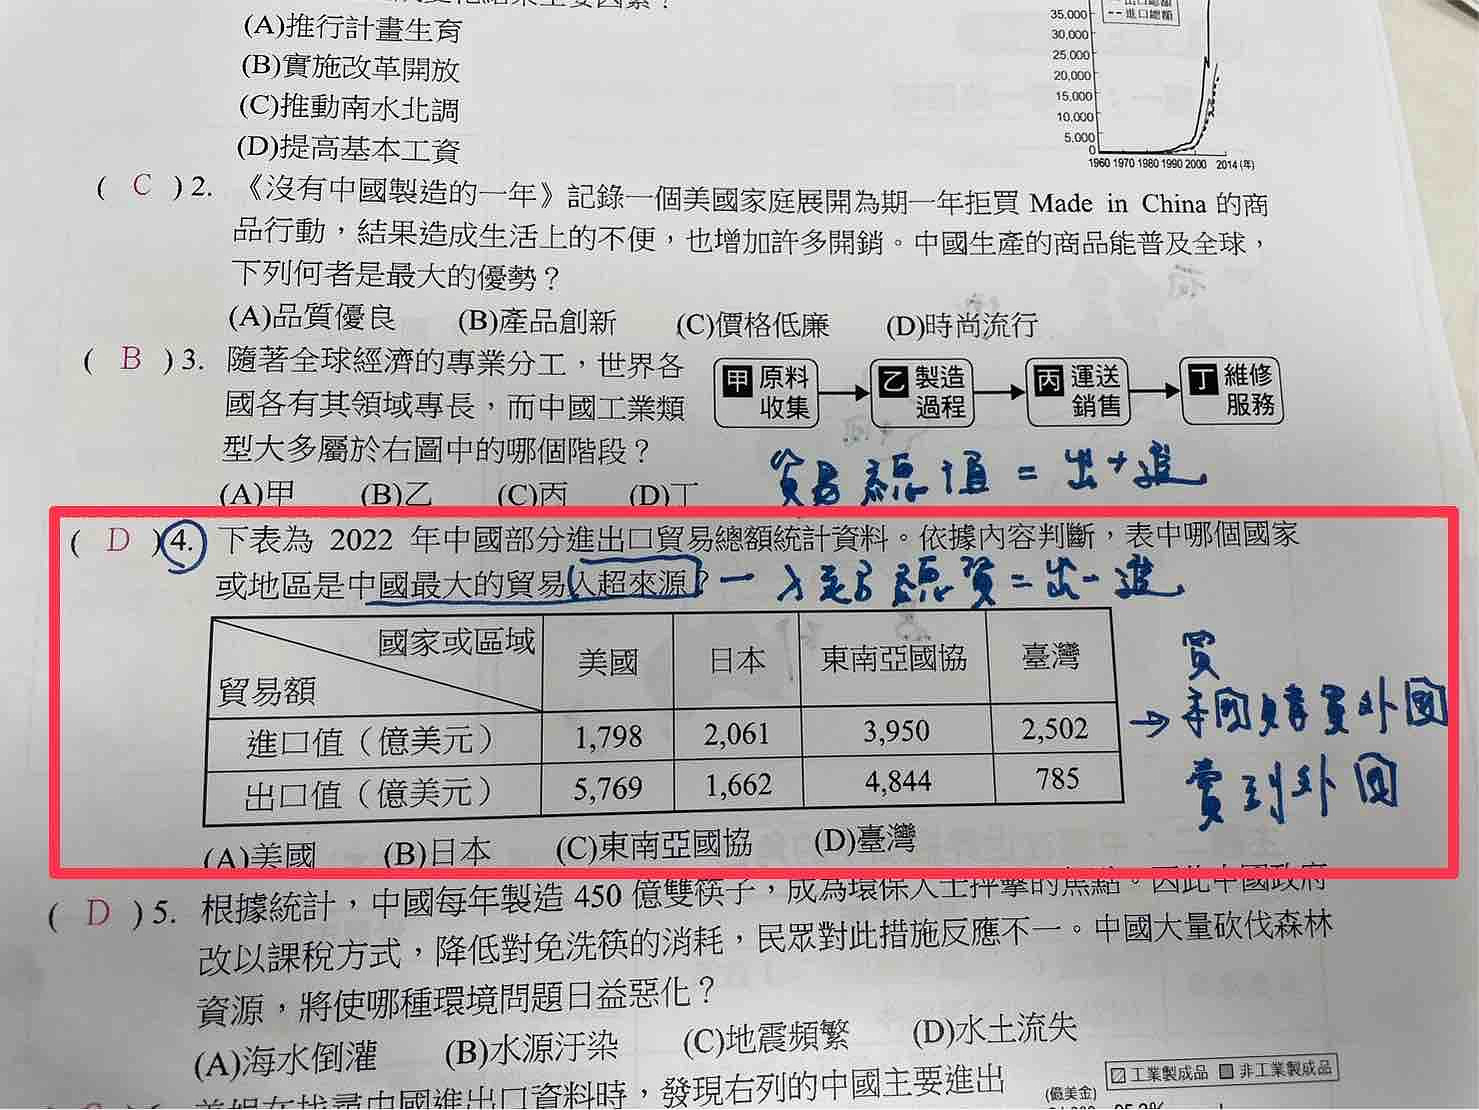 (A)推行計畫生育
(B)實施改革開放
(C)推動南水北調
(D)提高基本工資
35,000
30,000
25,000
20,000
15,000
10,000
5,000
0
1960 1970 1980 1990 2000 2014 (年)
出口總額
進口總額
( C ) 2. 《沒有中國製造的一年》記錄一個美國家庭展開為期一年拒買 Made in China 的商
品行動，結果造成生活上的不便，也增加許多開銷。中國生產的商品能普及全球，
下列何者是最大的優勢？
(A)品質優良 (B)產品創新 (C)價格低廉 (D)時尚流行
( B ) 3. 隨著全球經濟的專業分工，世界各
國各有其領域專長，而中國工業類
型大多屬於右圖中的哪個階段？
(A)甲 (B)乙 (C)丙 (D)丁
甲 原料收集
乙 製造過程
丙 運送銷售
丁 維修服務
貿易總值 = 出 + 進
( D ) 4. 下表為 2022 年中國部分進出口貿易總額統計資料。依據內容判斷，表中哪個國家
或地區是中國最大的貿易入超來源？
= 出 - 進
國家或區域 美國 日本 東南亞國協 臺灣
貿易額
進口值（億美元） 1,798 2,061 3,950 2,502
出口值（億美元） 5,769 1,662 4,844 785
買
→ 本國購買外國
賣到外國
(A)美國 (B)日本 (C)東南亞國協 (D)臺灣
( D ) 5. 根據統計，中國每年製造 450 億雙筷子，成為環保人士抨擊的焦點。因此中國政府
改以課稅方式，降低對免洗筷的消耗，民眾對此措施反應不一。中國大量砍伐森林
資源，將使哪種環境問題日益惡化？
(A)海水倒灌 (B)水源汙染 (C)地震頻繁 (D)水土流失
在找尋中國進出口資料時，發現右列的中國主要進出
(億美金)
工業製成品 非工業製成品